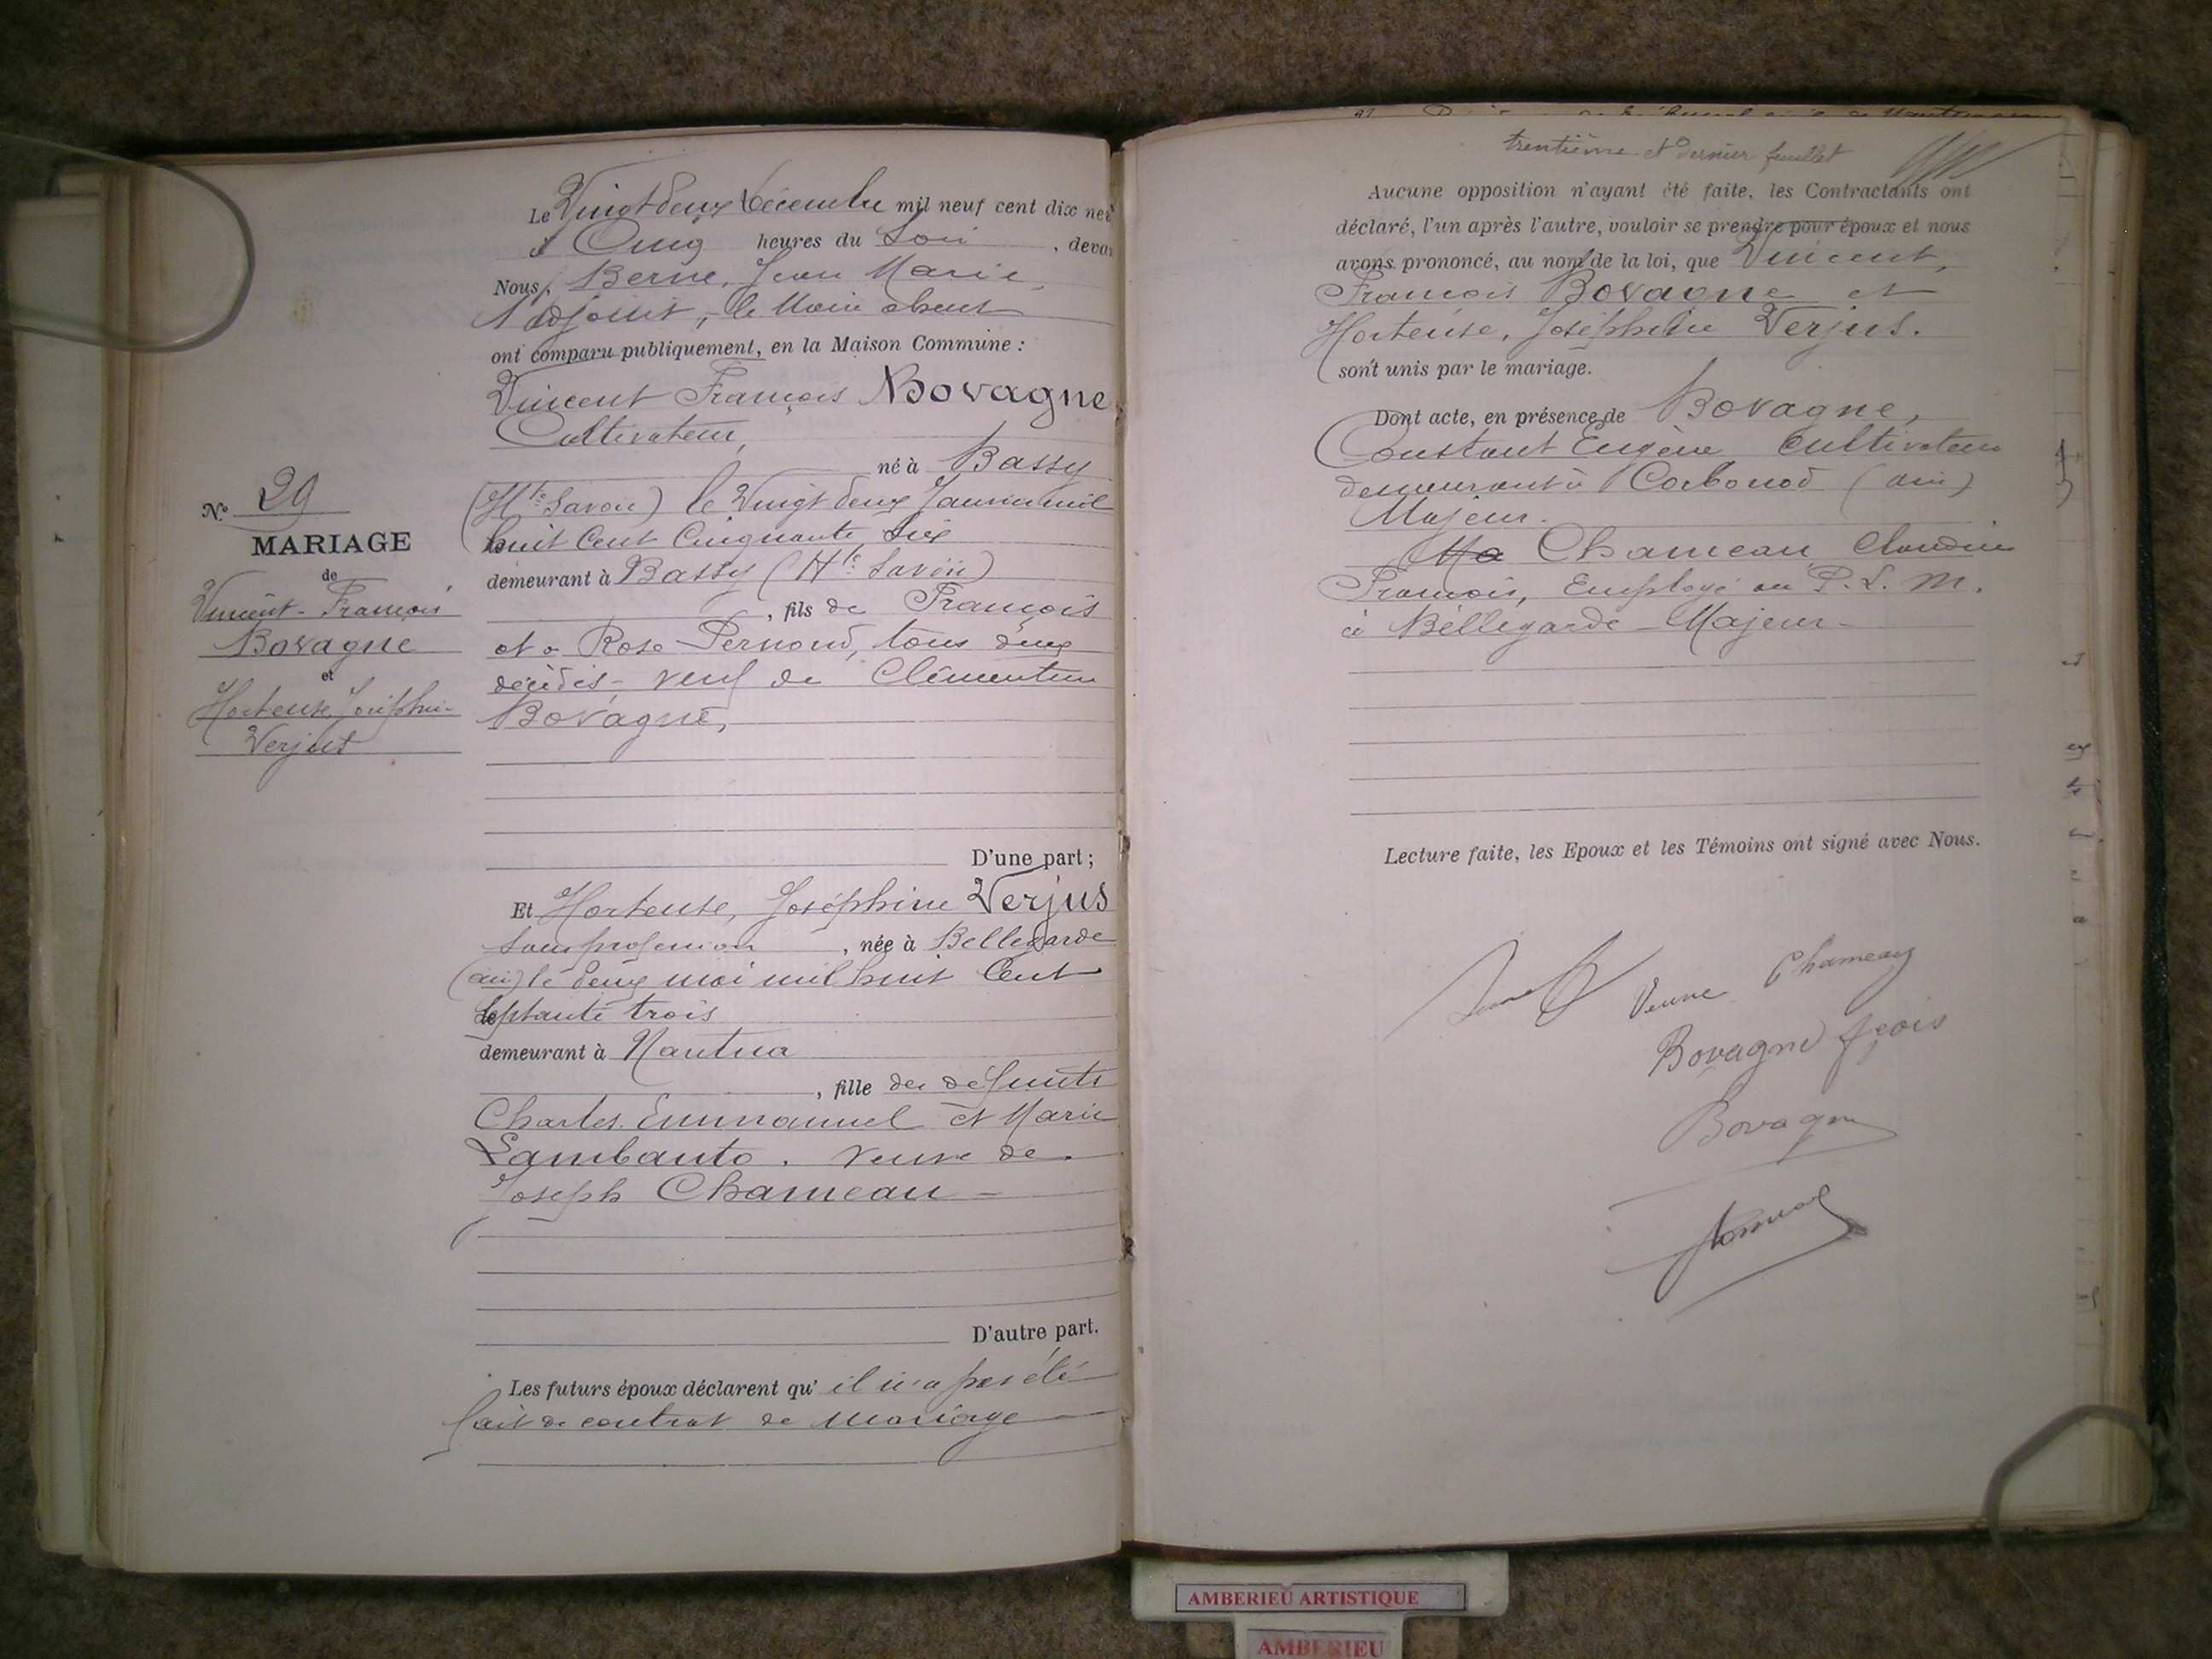 Le Vingt deux Décembre mil neuf cent dix neu
à Cinq heures du Soir, deva
Nous, Berne, Jean Marie,
Adjoint, le Maire absent
ont comparu publiquement, en la Maison Commune :
Vincent François Bovagne
Cultivateur,
né à Bassy
(Hte Savoie) le Vingt deux Janvier mil
huit Cent Cinquante Six
demeurant à Bassy (Hte Savoie)
, fils de François
et de Rose Pernoud, tous deux
décédés - veuf de Clémentine
Bovagne,
D'une part ;
No 29
MARIAGE
de
Vincent-François
Bovagne
et
Hortense Joséphine
Verjus
Et Hortense, Joséphine Verjus
Sans profession, née à Bellegarde
(ain) le deux mai mil huit Cent
Septante trois
demeurant à Nantua
, fille des défunts
Charles Emmanuel et Marie
Lambanto. veuve de
Joseph Chameau -
D'autre part.
Les futurs époux déclarent qu' il n'a pas été
fait de contrat de mariage
trentième et dernier feuillet
Aucune opposition n'ayant été faite, les Contractants ont
déclaré, l'un après l'autre, vouloir se prendre pour époux et nous
avons prononcé, au nom de la loi, que Vincent,
François Bovagne et
Hortense, Joséphine Verjus.
sont unis par le mariage.
Dont acte, en présence de Bovagne,
Constant Eugène Cultivateur
demeurant à Corbonod (ain)
Majeur.
Chameau, Claudius
François, Employé au P. L. M.
à Bellegarde - Majeur -
Lecture faite, les Epoux et les Témoins ont signé avec Nous.
Veuve Chameau
Bovagne fçois
Bovagne
AMBERIEU ARTISTIQUE
AMBERIEU